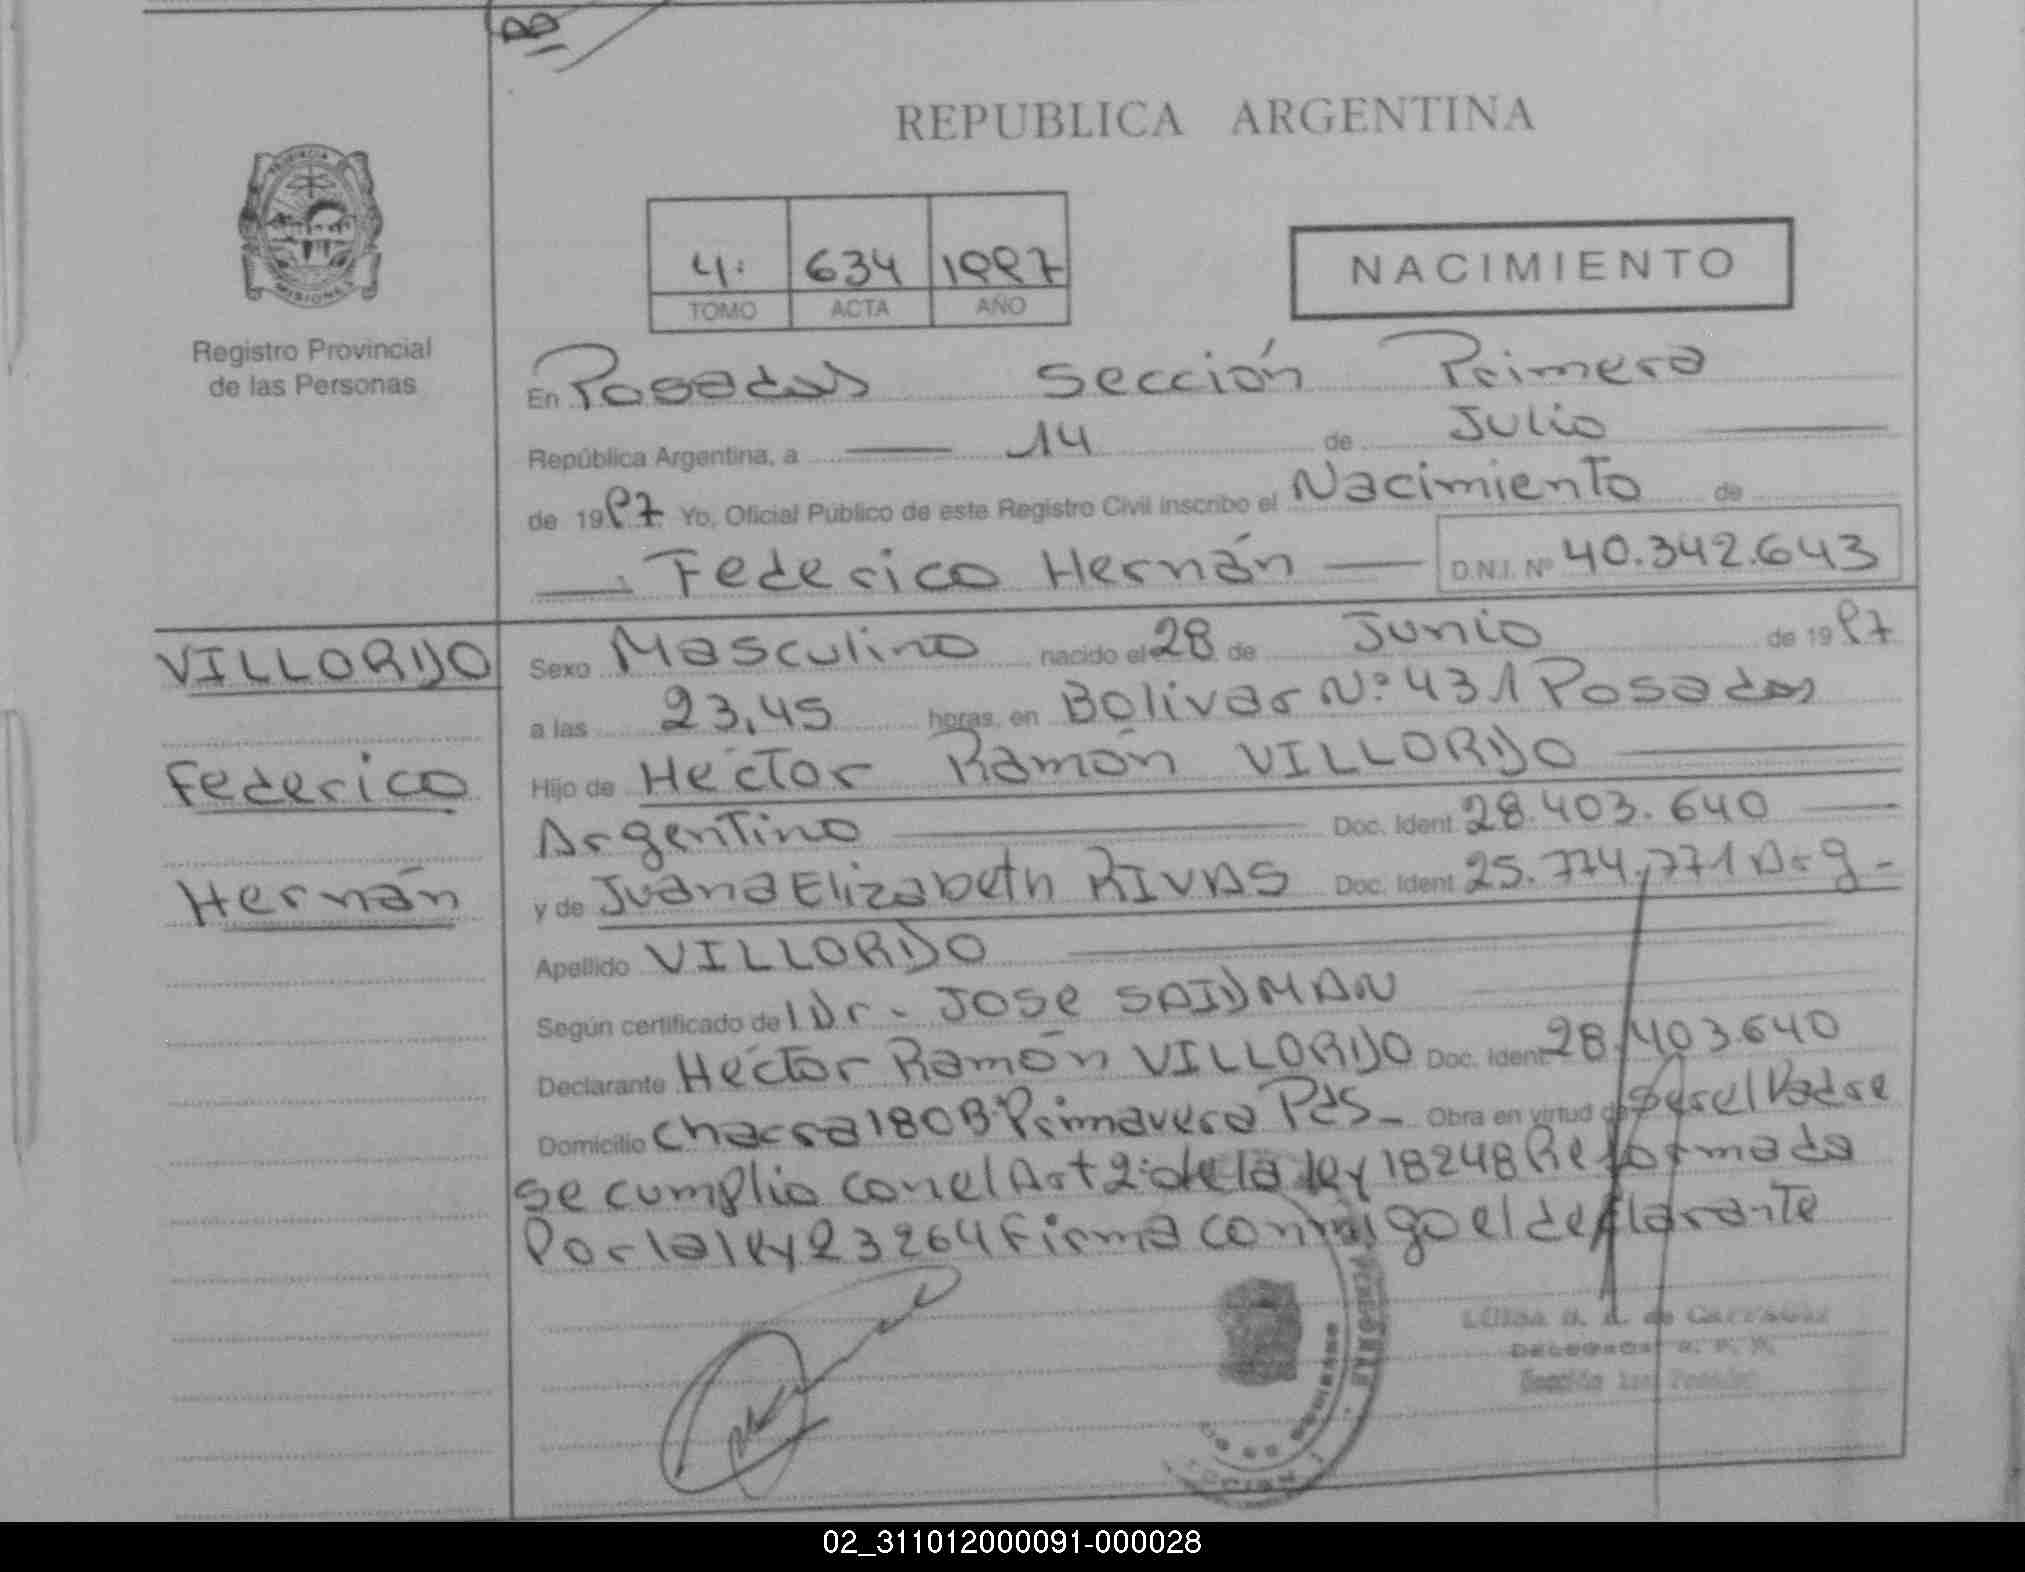 REPUBLICA ARGENTINA
PROVINCIA
MISIONES
Registro Provincial
de las Personas
4. 634 1997
TOMO ACTA AÑO
NACIMIENTO
En Posadas Sección Primera
República Argentina, a 14 de Julio
de 1997 Yo, Oficial Público de este Registro Civil inscribo el Nacimiento de
Federico Hernán D.N.I. Nº 40.342.643
VILLORDO
Federico
Hernán
Sexo Masculino nacido el 28 de Junio de 1997
a las 23,45 horas, en Bolivar Nº 431 Posadas
Hijo de Héctor Ramón VILLORDO
Argentino Doc. Ident 28.403.640
y de Juana Elizabeth RIVAS Doc. Ident 25.774.771 Arg-
Apellido VILLORDO
Según certificado del Dr. JOSE SAIDMAN
Declarante Héctor Ramón VILLORDO Doc. Ident 28.403.640
Domicilio Chacra 180 Bº Primavera Pds- Obra en virtud de ser el Padre
se cumplio con el Art 2º de la ley 18248 Reformada
Por la ley 23264 firma conmigo el declarante
de
Sección
02_311012000091-000028